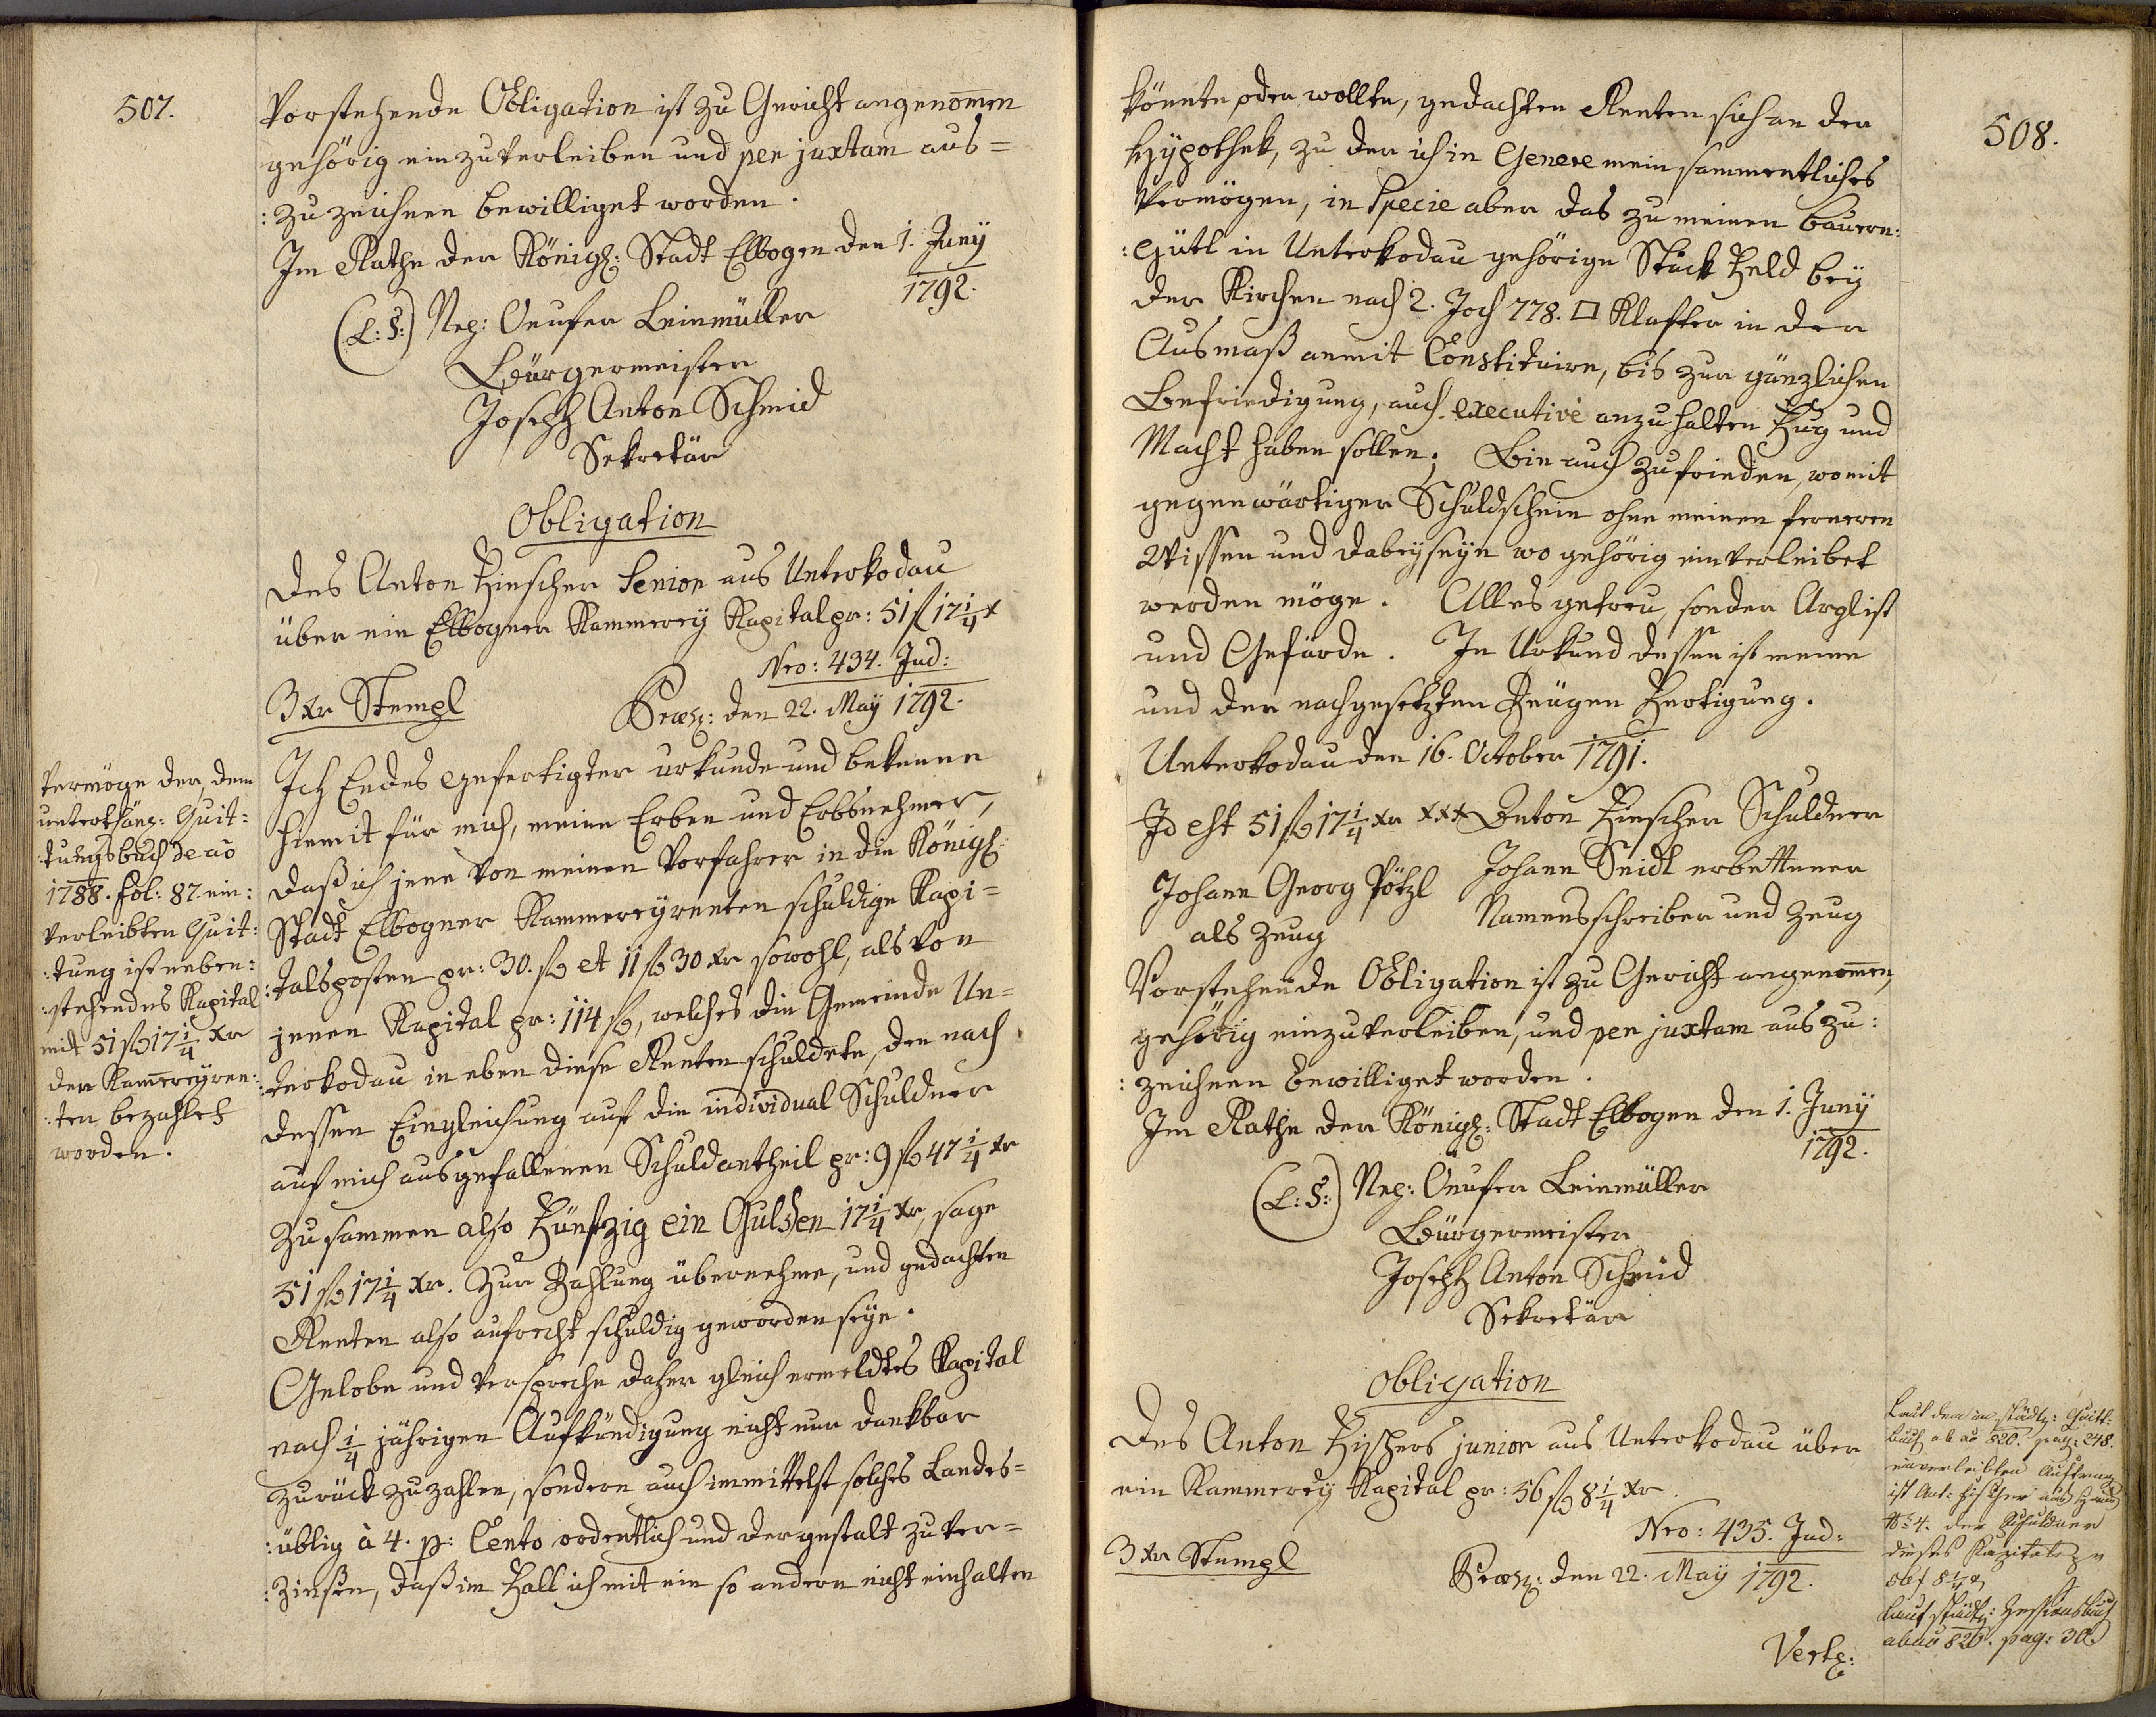 507.
Vorstehende Obligation ist zu Gericht angenom̅en
gehörig einzuverleiben und per juxtam aus=
:zuzeichnen bewilliget worden.
Im Rathe der Königl: Stadt Elbogen den 1. Juny
1792.
(L:S:) Nep: Onufer Leinmüller
Bürgermeister
Joseph Anton Schmid
Sekretär
Obligation
Des Anton Fischer Senior aus Unterkodau
über ein Elbogner Kammerey Kapital pr: 51 f 17 1/4 x
Nro: 434. Jud:
3 xr Stempl
Præs: den 22. May 1792.
Ich Endes gefertigter urkunde und bekenne
hiemit für mich, meine Erben und Erbsnehmer,
daß ich jene von meinen Vorfahrer in die Königl.
Stadt Elbogner Kammereyrenten schuldige Kapi=
:talsposten pr: 30. f et 11 f 30 xr sowohl, als von
jenen Kapital pr: 114 f, welches die Gemeinde Un=
:terkodau in eben diese Renten schuldete, den nach
dessen Eingleichung auf die individual Schuldner
auf mich ausgefallenen Schuldantheil pr: 9 f 47 1/4 xr
Zusammen also Fünfzig ein Gulden 17 1/4 xr, sage
51 f 17 1/4 xr. Zur Zahlung übernehme, und gedachten
Renten also aufrecht schuldig geworden seye.
Gelobe und verspreche daher gleich ermeldtes Kapital
nach 1/4 jähriger Aufkündigung nicht nur dankbar
zurück zu zahlen, sondern auch immittelst solches Landes=
:üblig à 4. p: Cento ordentlich und dergestalt zu ver=
:Zinsen, daß im Fall ich mit ein so andern nicht einhalten
Vermöge der, dem
unterthän: Quit:
:tungsbuch de ao
1788. fol: 87. ein:
verleibten Quit:
:tung ist neben:
:stehendes Kapital
mit 51 f 17 1/4 xr
der Kam̅ereyren:
:ten bezahlet
worden.
508.
könnte, oder wollte, gedachten Renten sich an der
Hypothek, zu der ich in Genere mein sammentliches
Vermögen, in Specie aber das zu meinen Bauern:
:gütl in Unterkodau gehörige Stück Feld bey
der Kirchen nach 2. Joch 778. □ Klafter in der
Ausmaß anmit Constituire, bis zur gänzlichen
Befriedigung, auch executivè anzuhalten Fug und
Macht haben sollen; Bin auch zufrieden, womit
gegenwärtiger Schuldschein ohne meinen ferneren
Wissen und dabeyseyn wo gehörig einverleibet
werden möge. Alles getreu, sonder Arglist
und Gefärde. In Urkund dessen ist meine
und der nachgesetzten Zeugen Fertigung.
Unterkodau den 16. October 1791.
Id est 51 f 17 1/4 xr xxx Anton Fischer Schuldner
Johann Georg Pötzl Johann Seidl erbettener
als Zeug Namensschreiber und Zeug
Vorstehende Obligation ist zu Gericht angenom̅en,
gehörig einzuverleiben, und per juxtam auszu:
:zeichnen bewilliget worden.
Im Rathe der Königl: Stadt Elbogen den 1. Juny
1792.
(L:S:) Nep: Onufer Leinmüller
Bürgermeister
Joseph Anton Schmid
Sekretär
Obligation
Des Anton Fischers junior aus Unterkodau über
ein Kammerey Kapital pr: 56 f 8 1/4 xr.
Nro: 435. Jud:
3 xr Stempl
Præs: den 22. May 1792.
Laut dem in städt: Quitt:
buch ab ao 820. pag: 248.
einverleibten
ist Ant: Fischer aus
No 4. der Schuldner
dieses Kapitals
56 f 8 1/4 x,
laut städt: Zessionsbuch
ab ao 820. pag: 30.